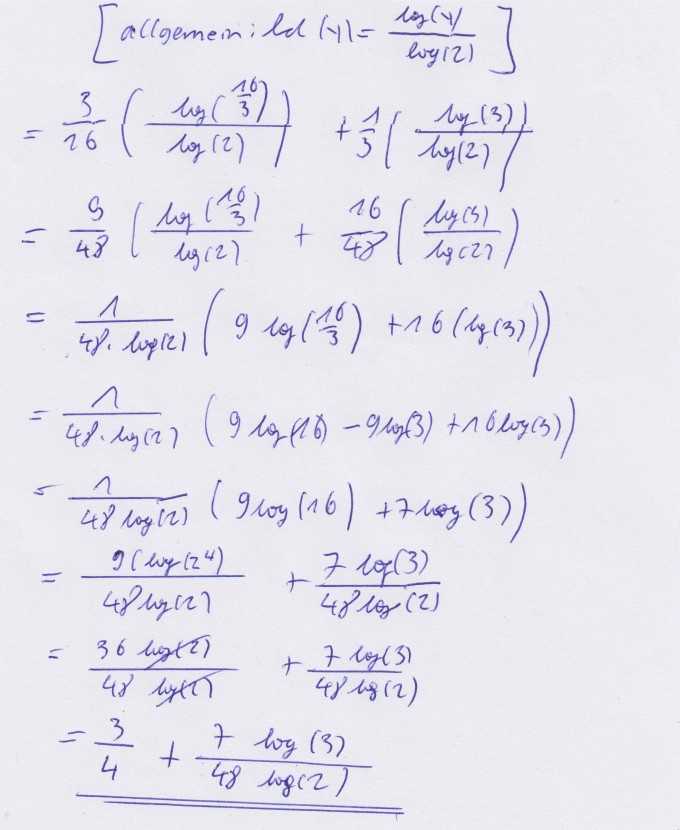 [allgemein: ld (y) = log(y) / log(2)]
= 3/16 ( log(16/3) / log(2) ) + 1/3 ( log(3) / log(2) )
= 9/48 ( log(16/3) / log(2) ) + 16/48 ( log(3) / log(2) )
= 1 / (48 · log(2)) ( 9 log(16/3) + 16 (log(3)) )
= 1 / (48 · log(2)) ( 9 log(16) - 9 log(3) + 16 log(3) )
= 1 / (48 log(2)) ( 9 log(16) + 7 log(3) )
= 9 (log(2⁴) / 48 log(2) + 7 log(3) / 48 log(2)
= 36 log(2) / 48 log(2) + 7 log(3) / 48 log(2)
= 3/4 + 7 log(3) / 48 log(2)